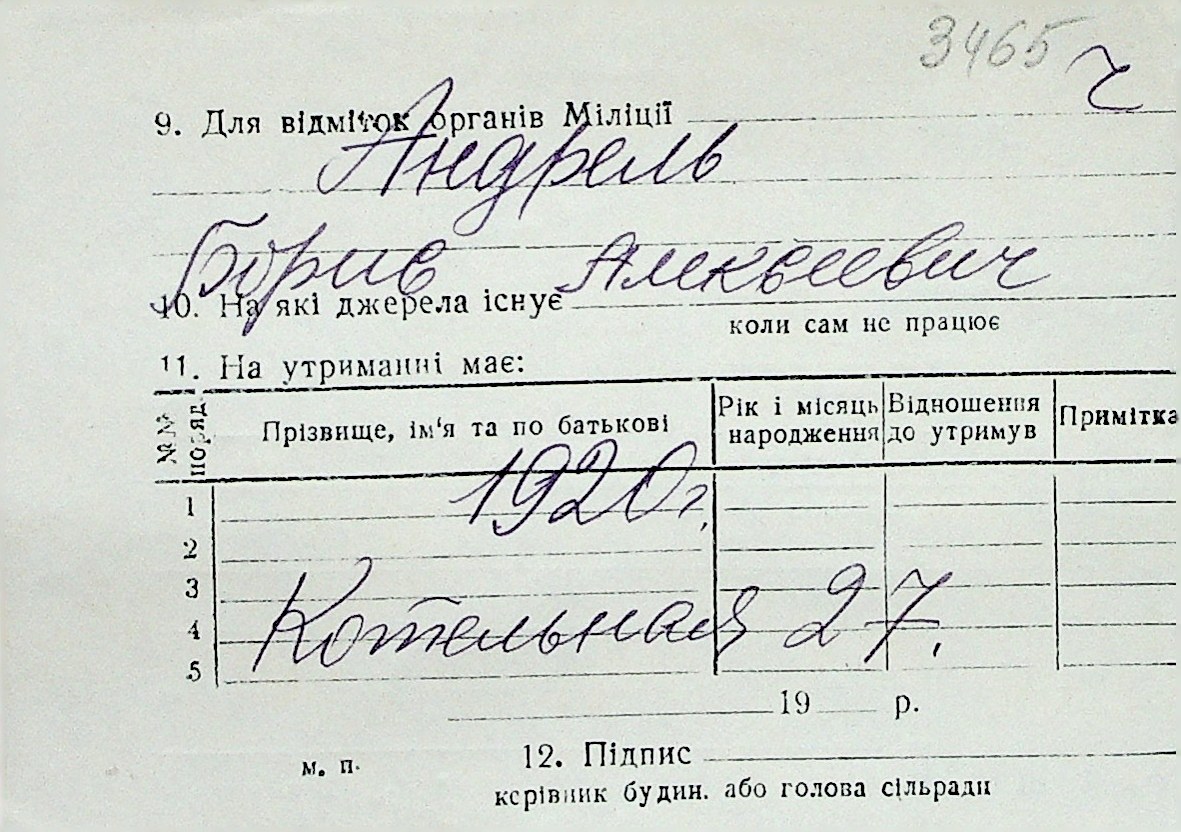 3465 ч
9. Для відміток органів Міліції
Андрель
Борис Алексеевич
10. На які джерела існує
коли сам не працює
11. На утриманні має:
№№ поряд. Прізвище, ім‘я та по батькові Рік і місяць народження Відношення до утримув Примітка
1 1920 г.
2
3
4 Котельная 27.
5
19 р.
м. п. 12. Підпис
керівник будин. або голова сільради